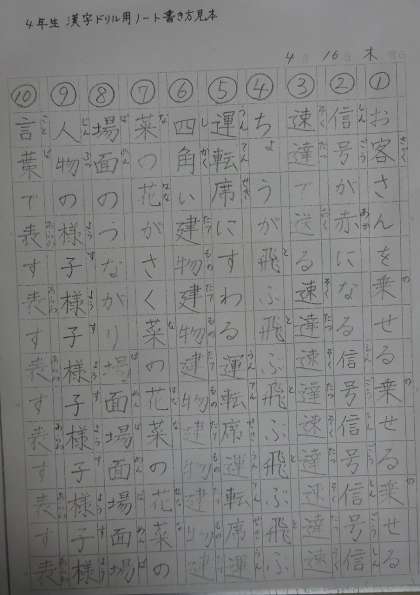 4年生 漢字ドリル用ノート書き方見本
4月 16日 木
①お客さんを乗せる乗せる乗せる
②信号が赤になる信号信号信号信
③速達で送る速達速達速達速達速
④ちょうが飛ぶ飛ぶ飛ぶ飛ぶ飛ぶ
⑤運転席にすわる運転席運転席運
⑥四角い建物建物建物建物建物建
⑦菜の花がさく菜の花菜の花菜の
⑧場面のつながり場面場面場面場
⑨人物の様子様子様子様子様子様
⑩言葉で表す表す表す表す表す表